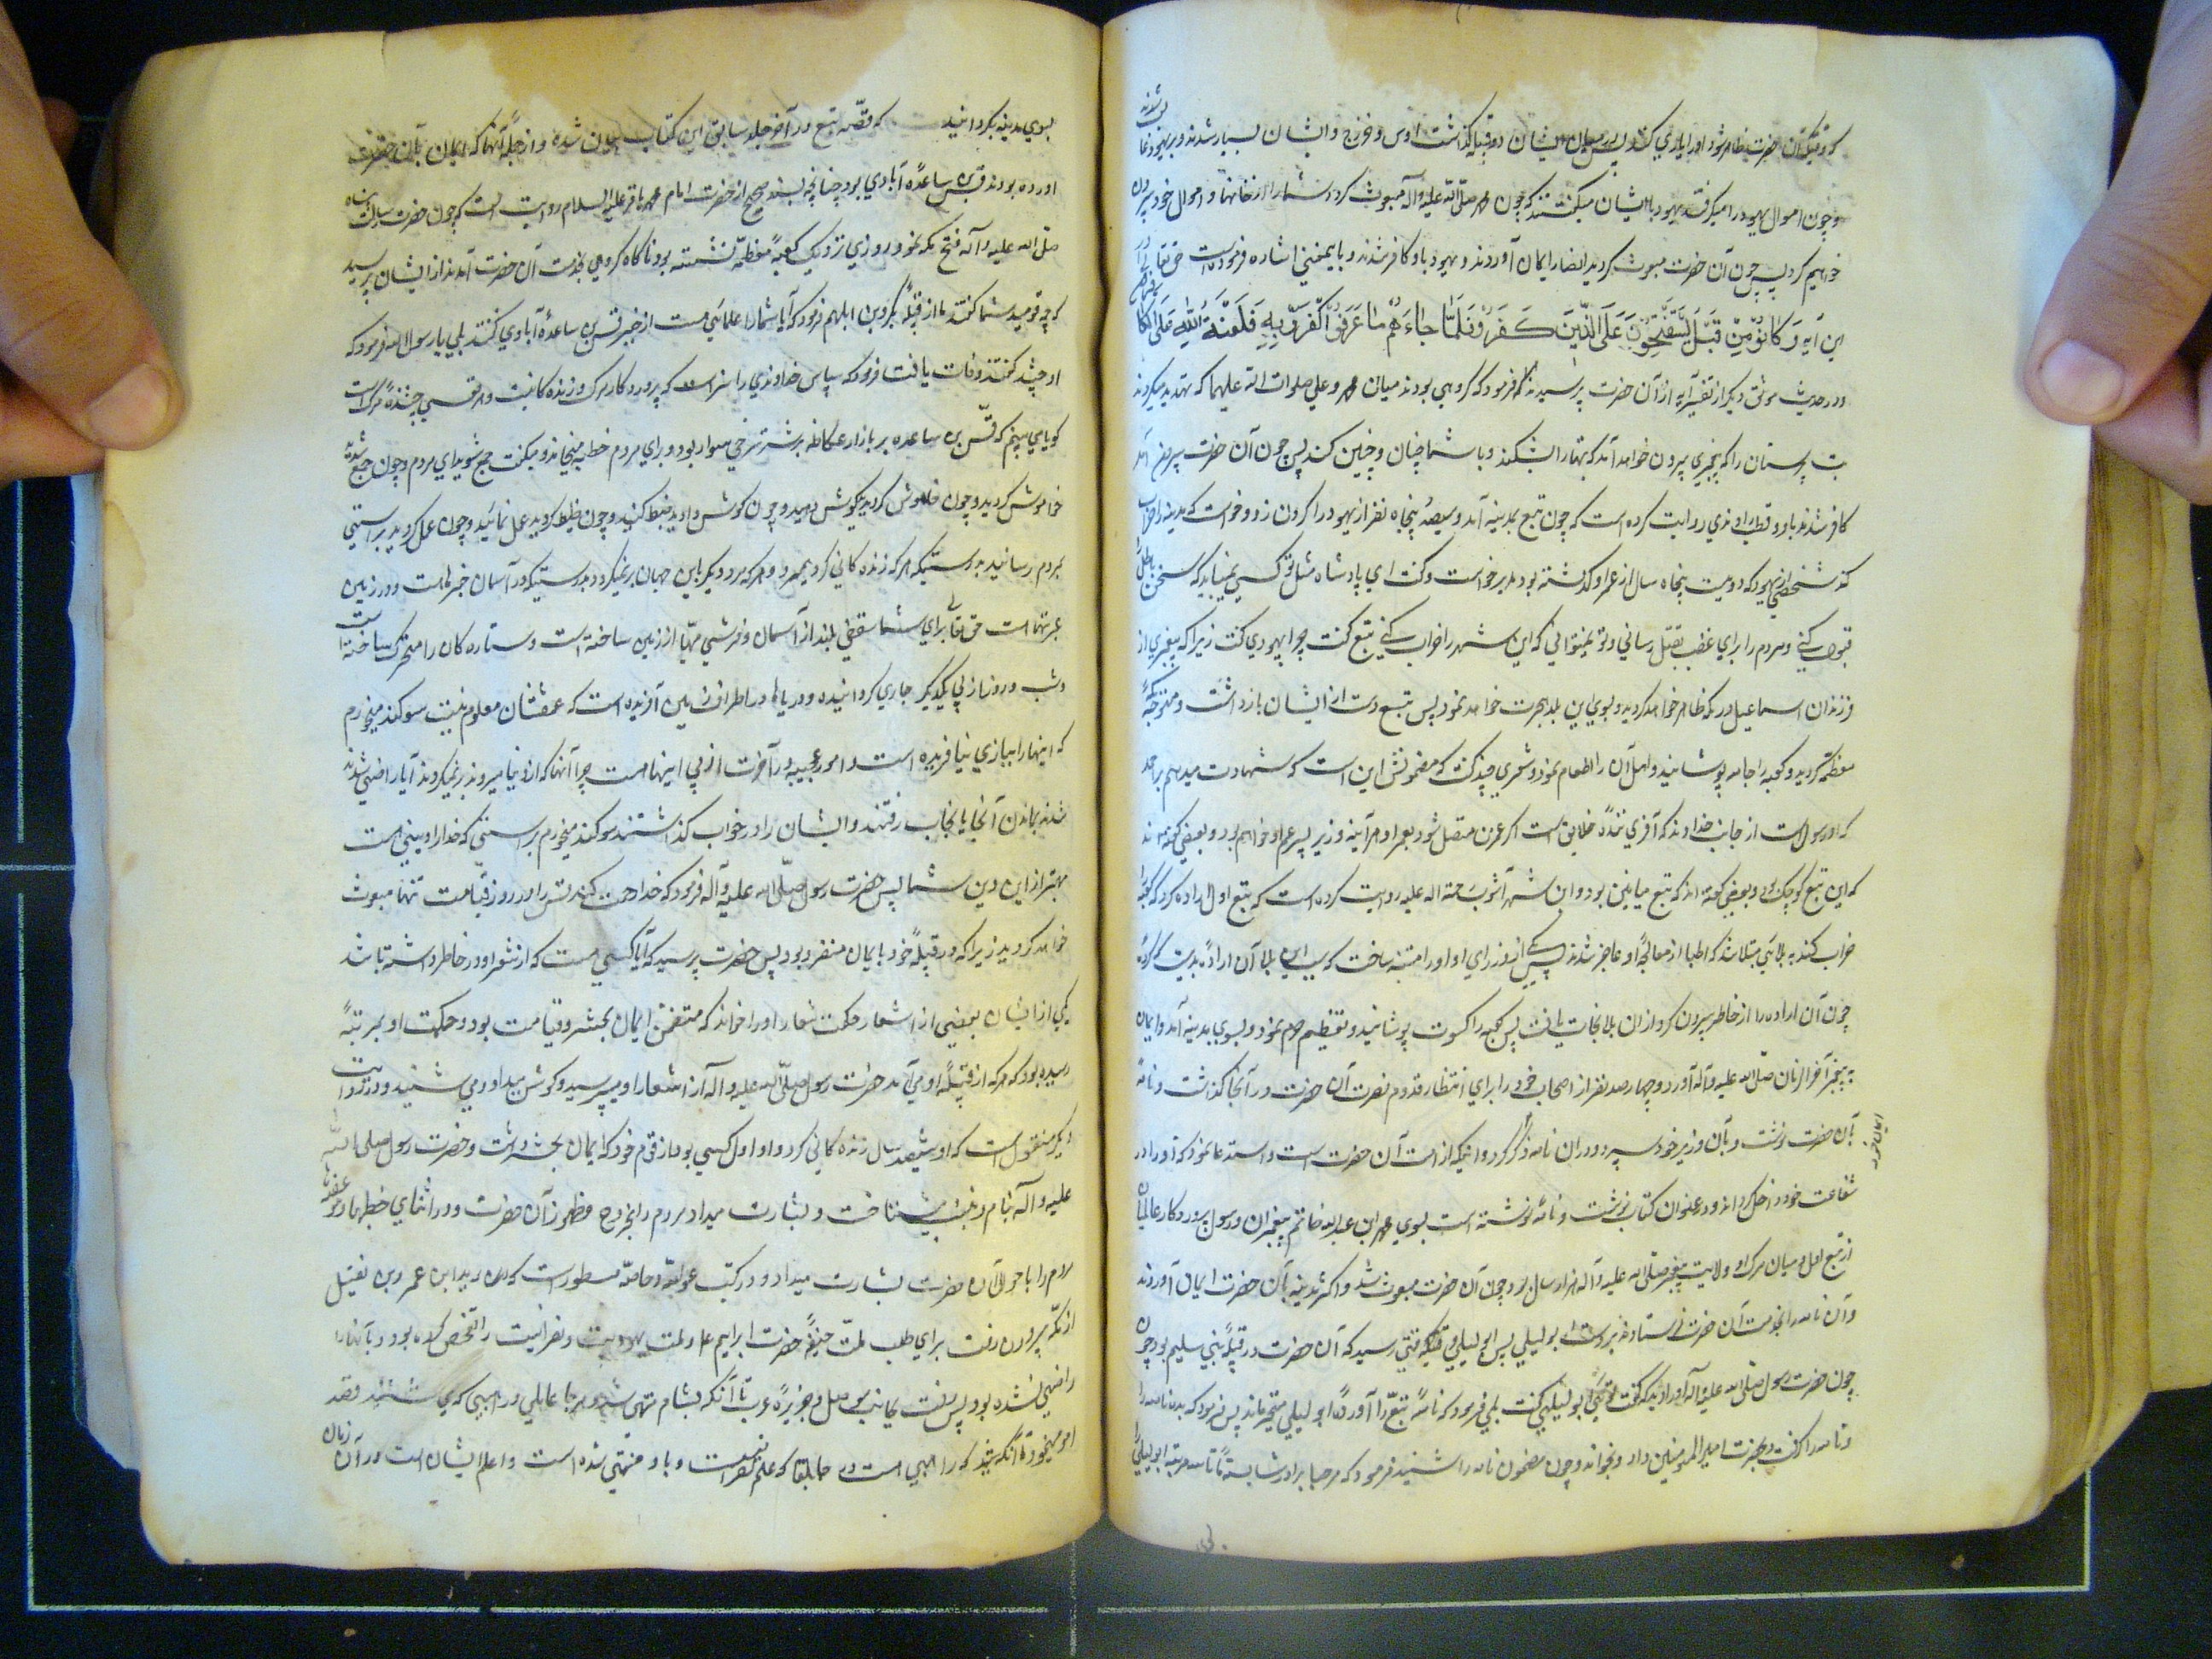 که وقتیکه آن حضرت ظاهر شود او را یاری کنند پس میان ایشان دو قبیله گذاشت اوس و خزرج و ایشان بسیار شدند و بر یهود غالب شدند
و چون اموال یهود را میگرفتند یهود بایشان میگفتند که چون محمد صلی الله علیه و آله مبعوث کردد شما را از خانها و اموال خود بیرون
خواهیم کرد پس چون آن حضرت مبعوث کردید انصار ایمان آوردند و یهود باو کافر شدند و باین معنی اشاره فرموده است حق تعالی در
این آیه وَ كَانُوا مِنْ قَبْلُ يَسْتَفْتِحُونَ عَلَى الَّذِينَ كَفَرُوا فَلَمَّا جَاءَهُمْ مَا عَرَفُوا كَفَرُوا بِهِ فَلَعْنَةُ اللَّهِ عَلَى الْكَافِرِينَ
و در حدیث موثق دیگر از تفسیر آیه از آن حضرت پرسیدند فرمود که کروهی بودند میان محمد و عیسی صلوات الله علیهما که تهدید میکردند
بت پرستان را که پیغمبری بیرون خواهد آمد که بتها را بشکند و با شما چنان و چنین کند پس چون آن حضرت بیرون آمد
کافر شدند باو و قطب راوندی روایت کرده است که چون تبع بمدینه آمد و سیصد و پنجاه نفر از یهود را کردن زد و خواست که مدینه را خراب
کند شخصی از یهود که دویست پنجاه سال از عمر او کذشته بود بر خواست و کفت ای پادشاه مثل تو کسی نمیباید که سخن باطل را
قبول کنی و مردم را برای غضب بقتل رسانی و تو نمیتوانی که این شهر را خراب کنی تبع کفت چرا یهودی کفت زیرا که پیغمبری از
فرزندان اسماعیل در مکه ظاهر خواهد کردید و بسوی این بلد هجرت خواهد نمود پس تبع دست از ایشان بازداشت و متوجه مکه
معظمه کردید و کعبه را جامه پوشانید و اهل آن را طعام نمود و شعری چند کفت که مضمونش این است که شهادت میدهم بر احمد
که او رسول است از جانب خداوند که آفرینندهٔ خلایق است اکر عمر من متصل شود بعمر او هر آینه وزیر و پسر عم او خواهم بود و بعضی کفته اند
که این تبع کوچک بود و بعضی کفته اند که تبع میانین بود و ابن شهر آشوب رحمة الله علیه روایت کرده است که تبع اول اراده کرد که کعبه را
خراب کند به بلائی مبتلا شد که اطبا از معالجه او عاجز شدند پس یکی از وزرای او او را متنبه ساخت که سبب این بلا آن ارادهٔ بدیست که کردهٔ
چون آن اراده را از خاطر بیرون کرد از ان بلا نجات یافت پس کعبه را کسوت پوشانید و تعظیم حرم نمود و بسوی مدینه آمد و ایمان
به پیغمبر آخر الزمان صلی الله علیه و آله آورد و چهار صد نفر از اصحاب خود را برای انتظار قدوم نصرت آن حضرت در آنجا کذاشت و نامهٔ
بآن حضرت نوشت و بآن وزیر خود سپرد و در ان نامه ذکر کرد و اینکه از امت آن حضرت است و استدعا نمود که او را در
ایمان خود
شفاعت خود داخل کرداند و در عنوان کتاب نوشت و نامه نوشته است بسوی محمد ابن عبدالله خاتم پیغمبران و رسول پروردکار عالمیان
از تبع اول و میان مرک او و ولادت پیغمبر صلی الله علیه و آله هزار سال بود چون آن حضرت مبعوث شد و اکثر مدینه بآن حضرت ایمان آوردند
و آن نامه را بخدمت آن حضرت فرستادند بر دست ابو لیلی پس ابو لیلی وقتیکه رسید که آن حضرت در قبیله بنی سلیم بود چون
چون حضرت رسول صلی الله علیه و آله او را دید که کفت توئی ابو لیلی کفت بلی فرمود که نامهٔ تبع را آوردهٔ ابو لیلی متحیر ماند پس فرمود که بده نامه را
و نامه را کرفت و بحضرت امیر المؤمنین داد و بخواند و چون مضمون نامه را شنید فرمود که مرحبا برادر شایسته تا سه مرتبه ابو لیلی را
بسوی مدینه بکردانید که قصه تبع در آخر جلد سابق این کتاب بیان شده و از جمله آنها که ایمان بآن حضرت
آورده بودند قس بن ساعدهٔ آبادی بود چنانچه بسند صحیح از حضرت امام محمد باقر علیه السلام روایت است که چون حضرت رسالت پناه
صلی الله علیه و آله فتح مکه نمود روزی نزدیک کعبهٔ معظمه نشسته بود ناکاه کروهی بخدمت آن حضرت آمدند از ایشان پرسید
که چه قومید شما کفتند ما از قبیلهٔ بکر بن وائلیم فرمود که آیا شما را علمی هست از خبر قس بن ساعدهٔ آبادی کفتند بلی یا رسول الله فرمود که
او چه شد کفتند وفات یافت فرمود که سپاس خداوندی را سزاست که پروردکار مرک و زنده کانیست و هر نفسی چشندهٔ مرک است
کویا می بینم که قس بن ساعده بر بازار عکاظ بر شتر سرخی سوار بود و برای مردم خطبه میخواند و میکفت جمع شوید ای مردم و چون جمع شدید
خاموش کردید و چون خاموش کردید کوش دهید و چون کوش دادید ضبط کنید و چون ضبط کردید عمل نمائید و چون عمل کردید براستی
بمردم رسانید بدرستیکه هر که زنده کانی کرد بمیرد و هر که مرد دیکر باین جهان برنمیکردد بدرستیکه در آسمان خبرهاست و در زمین
عبرتهاست حق تعالی برای شما سقفی بلند از آسمان و فرشی مهیا از زمین ساخته است و ستاره کان را متحرک ساخته است
و شب و روز از پی یکدیکر جاری کردانیده و دریاها در اطراف زمین آفریده است که عمقشان معلوم نیست سوکند میخورم
که اینها را ببازی نیافریده است و امور عجیبه در آخرت از پی اینهاست چرا آنها که از دنیا میروند برنمیکردند آیا راضی شدند
شدند بماندن آنجا یا بخواب رفتند و ایشان را در خواب کذاشتند سوکند میخورم براستی که خدا را دینی هست
بهتر از این دین شما پس حضرت رسول صلی الله علیه و آله فرمود که خدا رحمت کند قس را در روز قیامت تنها مبعوث
خواهد کردید زیرا که در قبیلهٔ خود بایمان منفرد بود پس حضرت پرسید که آیا کسی هست که از شعر او در خاطر داشته باشد
یکی از ایشان بعضی از اشعار حکمت شعار او را خواند که متضمن ایمان بحشر و قیامت بود و حکمت او بمرتبهٔ
رسیده بود که هر که از قبیلهٔ او می آمد حضرت رسول صلی الله علیه و آله از اشعار او میپرسید و کوش میداد و می شنید و در روایت
دیکر منقول است که او ششصد سال زنده کانی کرد و او اول کسی بود از قوم خود که ایمان بحشر داشت و حضرت رسول صلی الله
علیه و آله بنام و نسب میشناخت و بشارت میداد مردم را بخروج و ظهور آن حضرت و در اثنای خطبه‌ها و موعظه
مردم را باحوال آن حضرت بشارت میداد و در کتب عامه و خاصه مسطور است که زید ابن عمرو بن نفیل
از مکه بیرون رفت برای طلب ملت حنیفهٔ حضرت ابراهیم ع و ملت یهودیت و نصرانیت را تفحص کرده بود و بآنها را
راضی نشده بود پس رفت بجانب موصل و جزیرهٔ عرب تا آنکه بشام منتهی شد و هر جا عالمی و راهبی که می شنید قصد
او مینمود تا آنکه شنید که راهبی است در بلقا که علم نصرانیت باو منتهی شده است و اعلم ایشان است در آن زمان